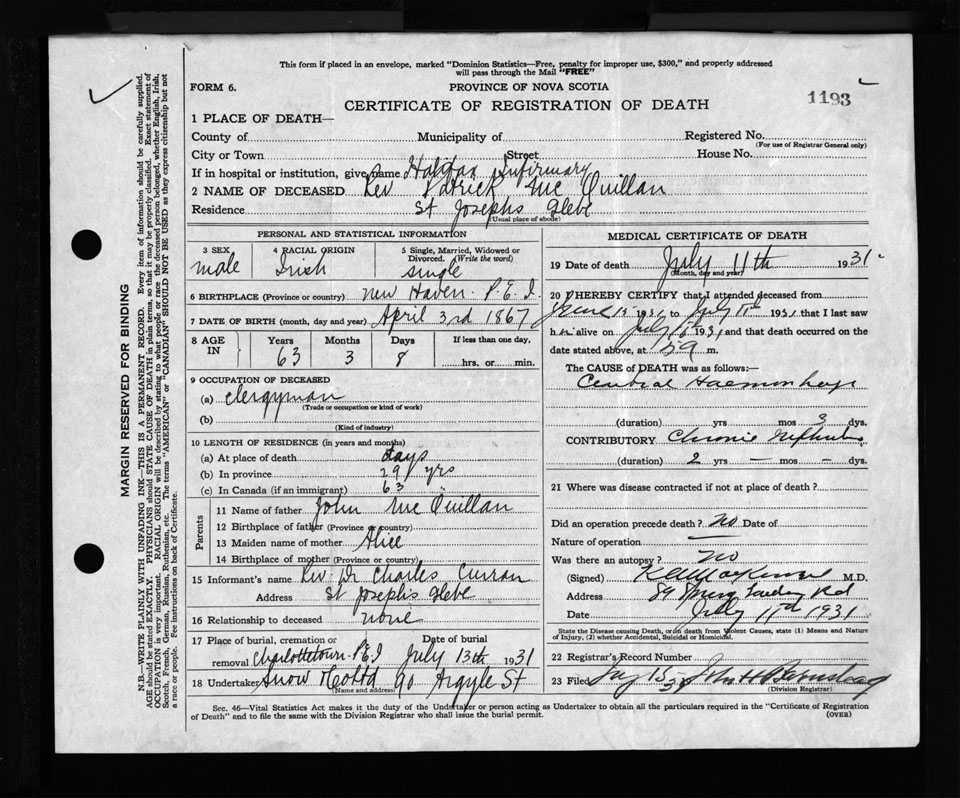 This form if placed in an envelope, marked "Dominion Statistics—Free, penalty for improper use, $300," and properly addressed
will pass through the Mail "FREE"
FORM 6.
PROVINCE OF NOVA SCOTIA
1193
CERTIFICATE OF REGISTRATION OF DEATH
1 PLACE OF DEATH—
County of Municipality of Registered No.
(For use of Registrar General only)
City or Town Street House No.
If in hospital or institution, give name Halifax Infirmary
2 NAME OF DECEASED Rev Patrick McQuillan
Residence St Josephs Glebe
(Usual place of abode)
PERSONAL AND STATISTICAL INFORMATION
3 SEX male
4 RACIAL ORIGIN Irish
5 Single, Married, Widowed or Divorced. (Write the word) single
6 BIRTHPLACE (Province or country) New Haven P.E.I.
7 DATE OF BIRTH (month, day and year) April 3rd 1867
8 AGE IN Years Months Days If less than one day,
63 3 8 hrs. or min.
9 OCCUPATION OF DECEASED
(a) clergyman
(Trade or occupation or kind of work)
(b)
(Kind of industry)
10 LENGTH OF RESIDENCE (in years and months)
(a) At place of death days
(b) In province 29 yrs
(c) In Canada (if an immigrant) 63 "
Parents
11 Name of father John McQuillan
12 Birthplace of father (Province or country)
13 Maiden name of mother Alice
14 Birthplace of mother (Province or country)
15 Informant's name Rev. Dr Charles Curran
Address St Josephs Glebe
16 Relationship to deceased none
17 Place of burial, cremation or removal Charlottetown P.E.I
Date of burial July 13th 1931
18 Undertaker Snow & Co Ltd 90 Argyle St
(Name and address)
MEDICAL CERTIFICATE OF DEATH
19 Date of death July 11th 1931
(Month, day and year)
20 I HEREBY CERTIFY that I attended deceased from
June 1931, to July 11th 1931 that I last saw
h alive on July 1931 and that death occurred on
date stated above, at m.
The CAUSE OF DEATH was as follows:—
Haemorrhage
(duration) yrs mos 3 dys.
CONTRIBUTORY Chronic Nephritis
(duration) 2 yrs — mos — dys.
21 Where was disease contracted if not at place of death?
Did an operation precede death? no Date of
Nature of operation —
Was there an autopsy? no
(Signed) M.D.
Address 89 Spring Garden Rd
Date July 11th 1931
State the Disease causing Death, or on death from Violent Causes, state (1) Means and Nature
of Injury, (2) whether Accidental, Suicidal or Homicidal.
22 Registrar's Record Number
23 Filed
(Division Registrar)
Sec. 46—Vital Statistics Act makes it the duty of the Undertaker or person acting as Undertaker to obtain all the particulars required in the "Certificate of Registration
of Death" and to file the same with the Division Registrar who shall issue the burial permit.
(OVER)
MARGIN RESERVED FOR BINDING
N.B.—WRITE PLAINLY WITH UNFADING INK—THIS IS A PERMANENT RECORD. Every item of information should be carefully supplied.
AGE should be stated EXACTLY. PHYSICIANS should STATE CAUSE OF DEATH in plain terms, so that it may be properly classified. Exact statement of
OCCUPATION is very important. RACIAL ORIGIN will be described by stating to what people or race the deceased person belonged, whether English, Irish,
Scotch, French, German, Russian, Ruthenian, etc. The terms "AMERICAN" or "CANADIAN" SHOULD NOT BE USED as they express citizenship but not
a race or people. See instructions on back of Certificate.